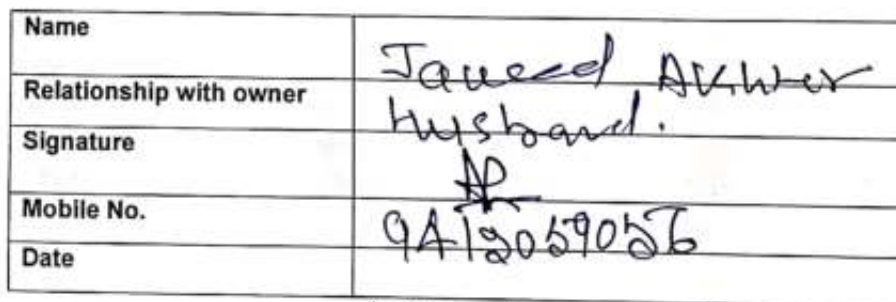 Name Javeed Akhter
Relationship with owner Husband.
Signature
Mobile No. 9412059056
Date